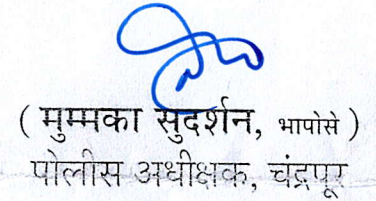 ( मुम्मका सुदर्शन, भापोसे )
पोलीस अधीक्षक, चंद्रपूर